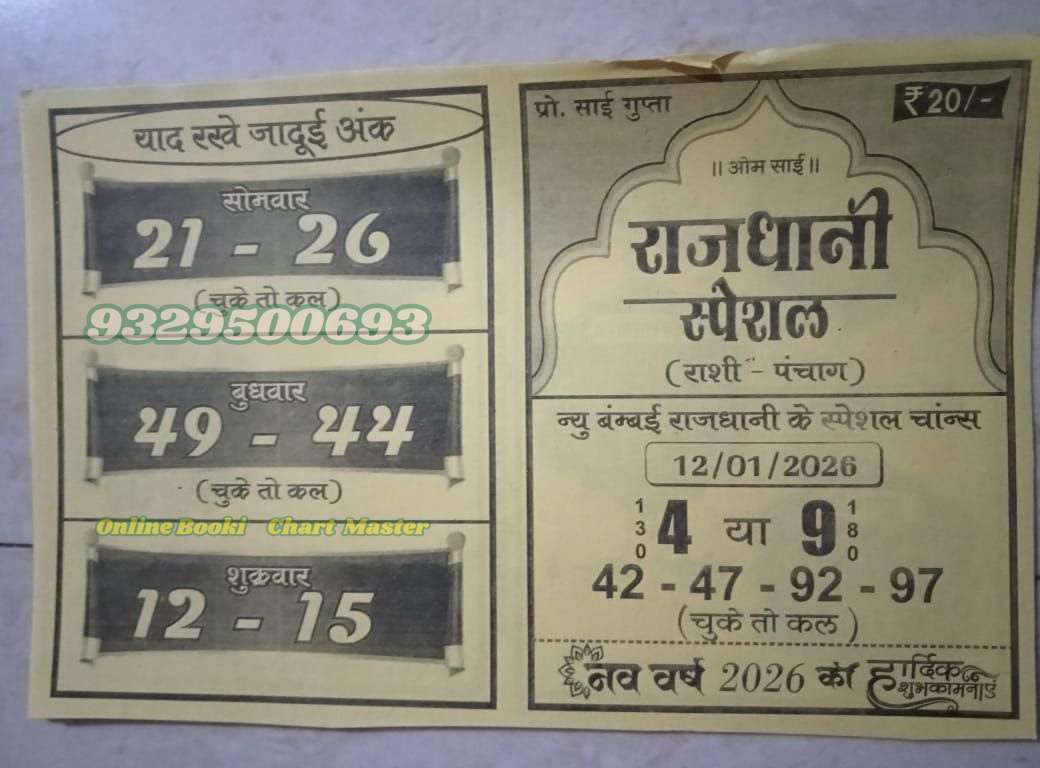 याद रखे जादूई अंक
सोमवार
21 - 26
(चुके तो कल)
9329500693
बुधवार
49 - 44
(चुके तो कल)
Online Booki Chart Master
शुक्रवार
12 - 15
प्रो. साई गुप्ता
₹ 20/-
॥ ओम साई॥
राजधानी
स्पेशल
(राशी - पंचाग)
न्यु बंम्बई राजधानी के स्पेशल चांन्स
12/01/2026
130 4 या 9 180
42 - 47 - 92 - 97
(चुके तो कल)
नव वर्ष 2026 की हार्दिक
शुभकामनाएं